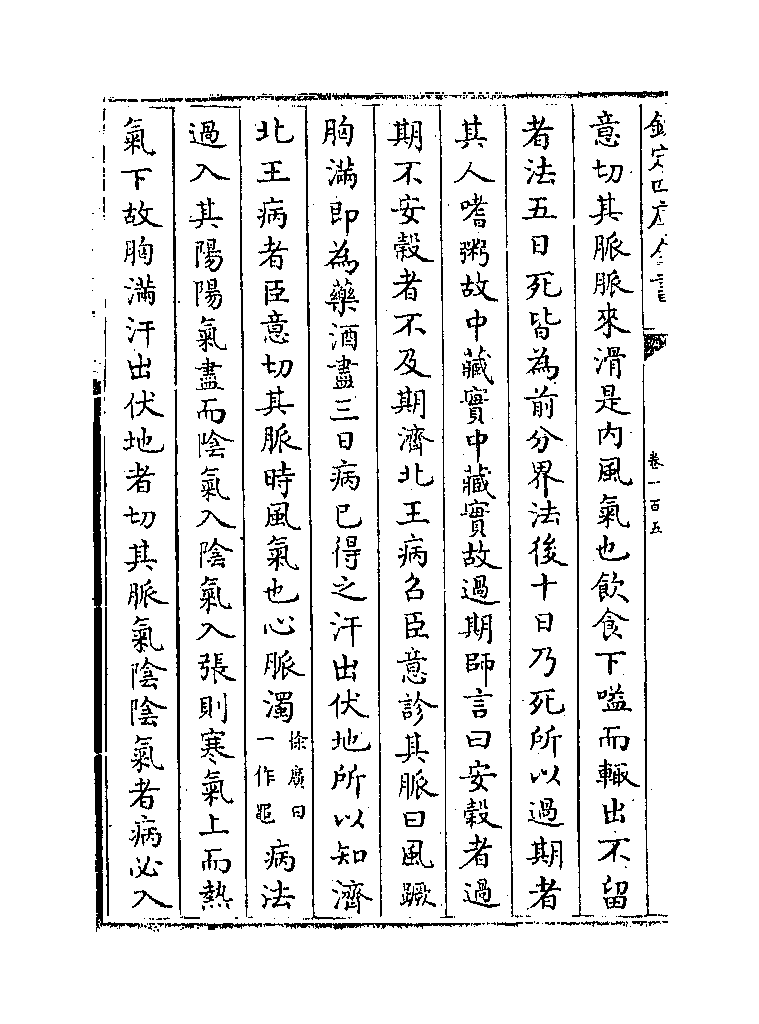 欽定四庫全書
卷一百五
意切其脈脈來滑是内風氣也飲食下嗌而輙出不留
者法五日死皆為前分界法後十日乃死所以過期者
其人嗜粥故中藏實中藏實故過期師言曰安穀者過
期不安穀者不及期濟北王病召臣意診其脈曰風蹶
胸滿即為藥酒盡三日病已得之汗出伏地所以知濟
北王病者臣意切其脈時風氣也心脈濁徐廣曰一作黽病法
過入其陽陽氣盡而陰氣入陰氣入張則寒氣上而熱
氣下故胸滿汗出伏地者切其脈氣陰陰氣者病必入